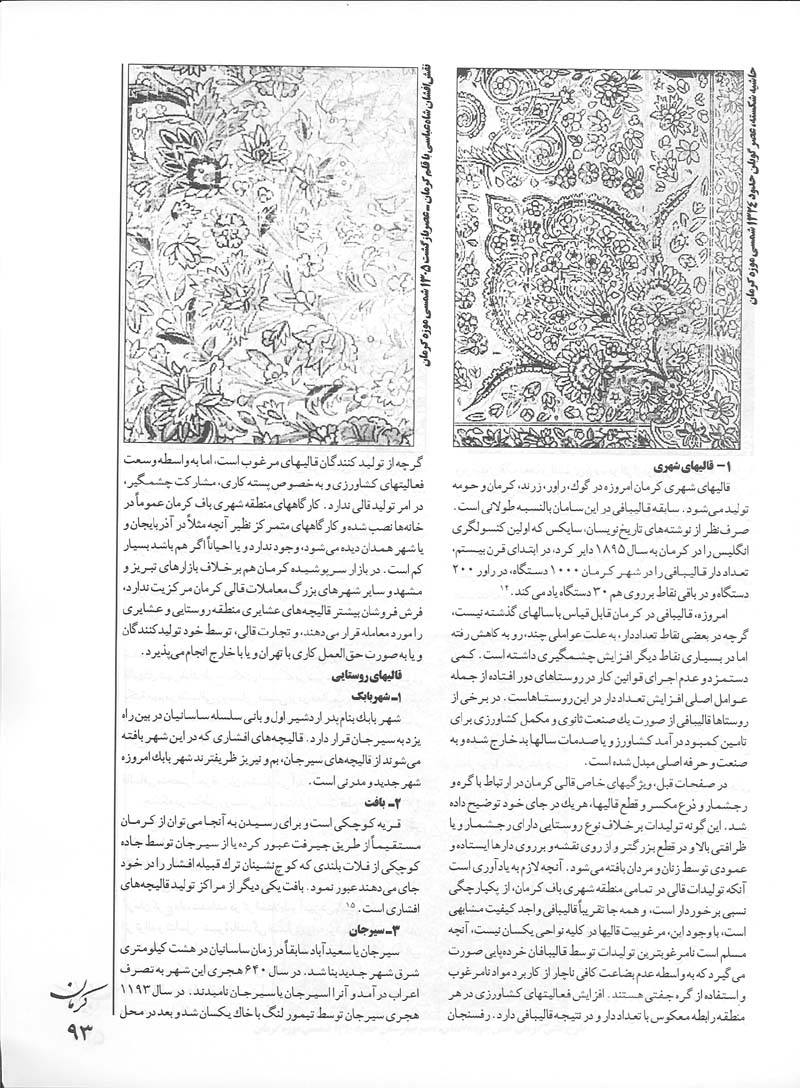 حاشیه شکسته، عصر گوبلن حدود ۱۳۳۴ شمسی موزه کرمان
نقش افشان شاه عباسی با قلم کرمان ـ عصر بازگشت ۱۳۰۵ شمسی موزه کرمان
۱ – قالیهای شهری
قالیهای شهری کرمان امروزه در گوك، راور، زرند، کرمان و حومه
تولید می‌شود. سابقه قالیبافی در این سامان بالنسبه طولانی است.
صرف‌نظر از نوشته‌های تاریخ‌نویسان، سایکس که اولین کنسولگری
انگلیس را در کرمان به سال ۱۸۹۵ دایر کرد، در ابتدای قرن بیستم،
تعداد دار قالیبافی را در شهر کرمان ۱۰۰۰ دستگاه، در راور ۲۰۰
دستگاه و در باقی نقاط برروی هم ۳۰ دستگاه یاد می‌کند.۱۴
امروزه، قالیبافی در کرمان قابل قیاس با سالهای گذشته نیست،
گرچه در بعضی نقاط تعداد دار، به علت عواملی چند، رو به کاهش رفته
اما در بسیاری نقاط دیگر افزایش چشمگیری داشته است. کمی
دستمزد و عدم اجرای قوانین کار در روستاهای دور افتاده از جمله
عوامل اصلی افزایش تعداد دار در این روستاهاست. در برخی از
روستاها قالیبافی از صورت یك صنعت ثانوی و مکمل کشاورزی برای
تامین کمبود درآمد کشاورز و یا صدمات سالها بد خارج شده و به
صنعت و حرفه اصلی مبدل شده است.
در صفحات قبل، ویژگیهای خاص قالی کرمان در ارتباط با گره و
رجشمار و ذرع مکسر و قطع قالیها، هریك در جای خود توضیح داده
شد. این گونه تولیدات برخلاف نوع روستایی دارای رجشمار و یا
ظرافتی بالا و در قطع بزرگتر و از روی نقشه و برروی دارها ایستاده و
عمودی توسط زنان و مردان بافته می‌شود. آنچه لازم به یادآوری است
آنکه تولیدات قالی در تمامی منطقه شهری باف کرمان، از یکپارچگی
نسبی برخوردار است، و همه جا تقریباً قالیبافی واجد کیفیت مشابهی
است، با وجود این، مرغوبیت قالیها در کلیه نواحی یکسان نیست، آنچه
مسلم است نامرغوبترین تولیدات توسط قالیبافان خرده‌پایی صورت
می‌گیرد که به واسطه عدم بضاعت کافی ناچار از کاربرد مواد نامرغوب
و استفاده از گره جفتی هستند. افزایش فعالیتهای کشاورزی در هر
منطقه رابطه معکوس با تعداد دار و در نتیجه قالیبافی دارد. رفسنجان
گرچه از تولیدکنندگان قالیهای مرغوب است، اما به واسطه وسعت
فعالیتهای کشاورزی و به خصوص پسته کاری، مشارکت چشمگیر،
در امر تولید قالی ندارد. کارگاههای منطقه شهری باف کرمان عموماً در
خانه‌ها نصب شده و کارگاههای متمرکز نظیر آنچه مثلاً در آذربایجان و
یا شهر همدان دیده می‌شود، وجود ندارد و یا احیاناً اگر هم باشد بسیار
کم است. در بازار سرپوشیده کرمان هم برخلاف بازارهای تبریز و
مشهد و سایر شهرهای بزرگ معاملات قالی کرمان مرکزیت ندارد،
فرش فروشان بیشتر قالیچه‌های عشایری منطقه روستایی و عشایری
را مورد معامله قرار می‌دهند، و تجارت قالی، توسط خود تولیدکنندگان
و یا به صورت حق‌العمل کاری با تهران و یا با خارج انجام می‌پذیرد.
قالیهای روستایی
۱ـ شهربابك
شهر بابك بنام پدر اردشیر اول و بانی سلسله ساسانیان در بین راه
یزد به سیرجان قرار دارد. قالیچه‌های افشاری که در این شهر بافته
می‌شوند از قالیچه‌های سیرجان، بم و نیریز ظریفترند شهر بابك امروزه
شهر جدید و مدرنی است.
۲ـ بافت
قریه کوچکی است و برای رسیدن به آنجا می‌توان از کرمان
مستقیماً از طریق جیرفت عبور کرده یا از سیرجان توسط جاده
کوچکی از فلات بلندی که کوچ‌نشینان ترك قبیله افشار را در خود
جای می‌دهند عبور نمود. بافت یکی دیگر از مراکز تولید قالیچه‌های
افشاری است.۱۵
۳ـ سیرجان
سیرجان یا سعیدآباد سابقاً در زمان ساسانیان در هشت کیلومتری
شرق شهر جدید بنا شد. در سال ۶۴۰ هجری این شهر به تصرف
اعراب درآمد و آنرا السیرجان یا سیرجان نامیدند. در سال ۱۱۹۳
هجری سیرجان توسط تیمور لنگ با خاك یکسان شد و بعد در محل
کرمان
۹۳